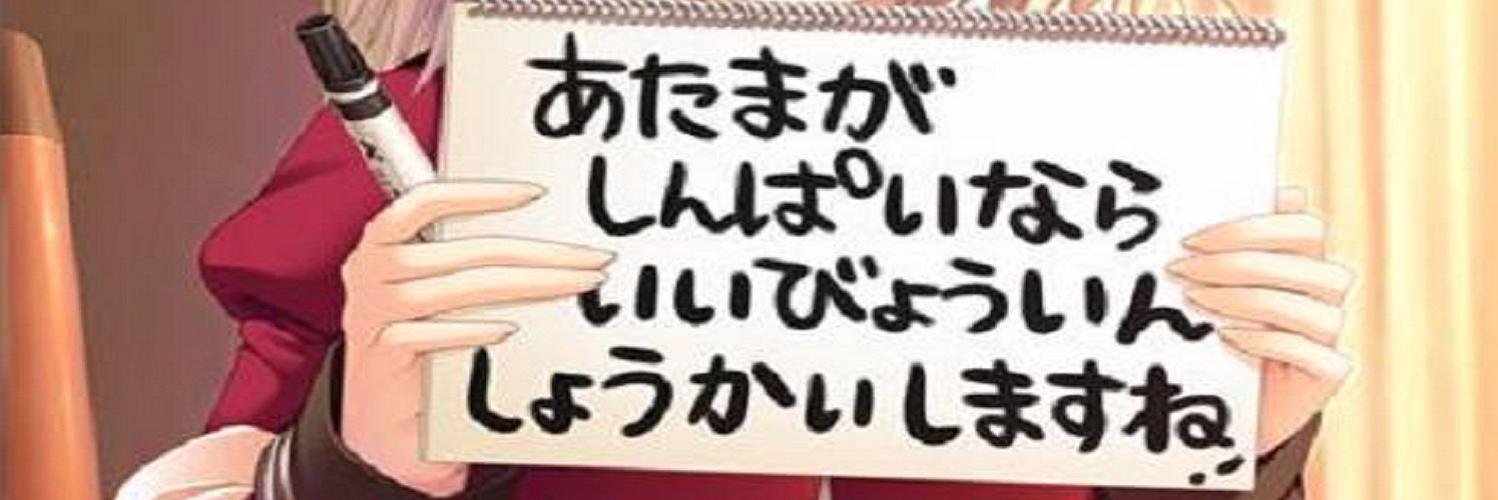 あたまが
しんぱいなら
いいびょういん
しょうかいしますね